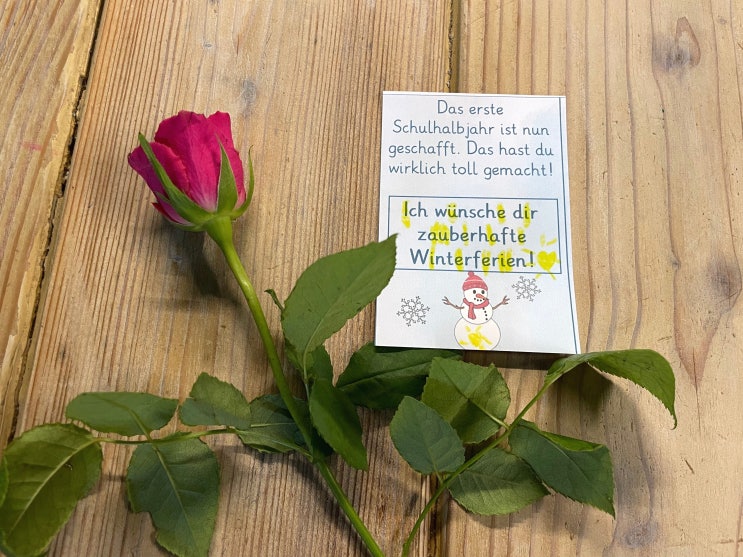 Das erste
Schulhalbjahr ist nun
geschafft. Das hast du
wirklich toll gemacht!
Ich wünsche dir
zauberhafte
Winterferien!